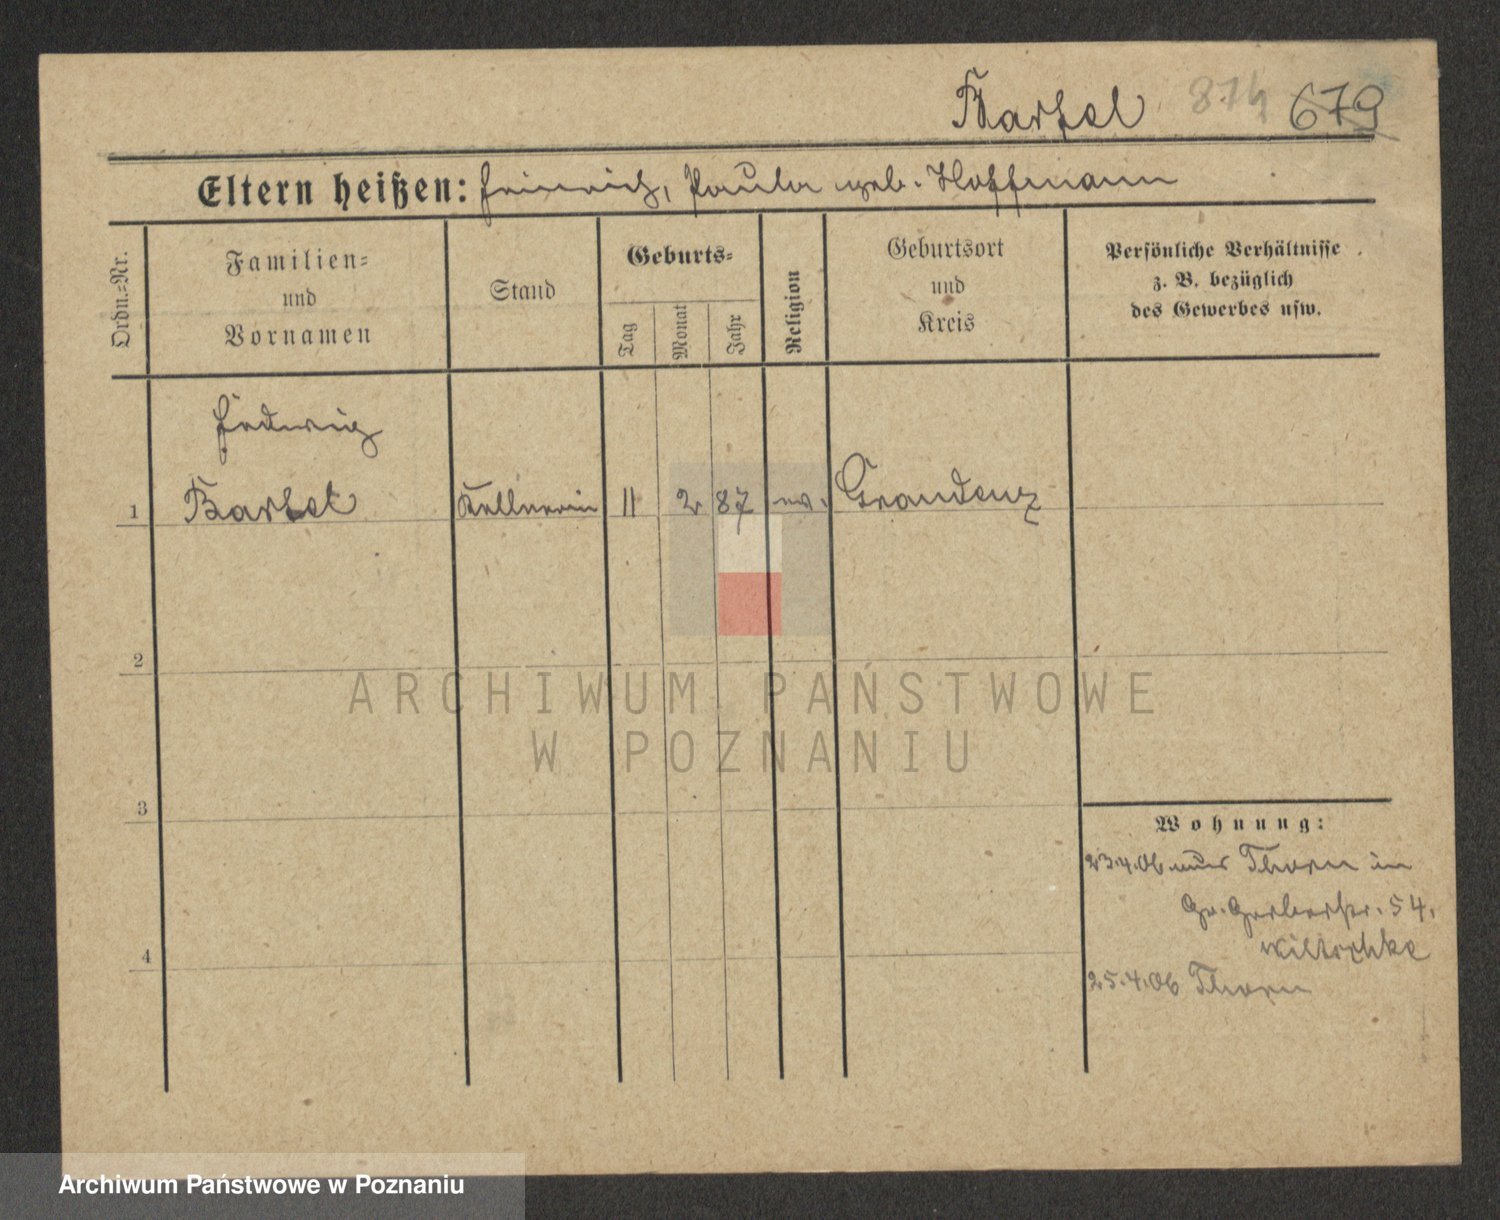 Bartel 874 679
Eltern heißen: Heinrich, Paula geb. Hoffmann
Ordn.=Nr.
Familien=
und
Vornamen
Stand
Geburts=
Tag
Monat
Jahr
Religion
Geburtsort
und
Kreis
Persönliche Verhältnisse
z. B. bezüglich
des Gewerbes usw.
Hedwig
1 Bartel Kellnerin 11 2 87 ev. Graudenz
2
ARCHIWUM PAŃSTWOWE
W POZNANIU
3
Wohnung:
23.4.06 aus Thorn in
Gr. Gerberstr. 54.
25.4.06 Thorn
4
Archiwum Państwowe w Poznaniu